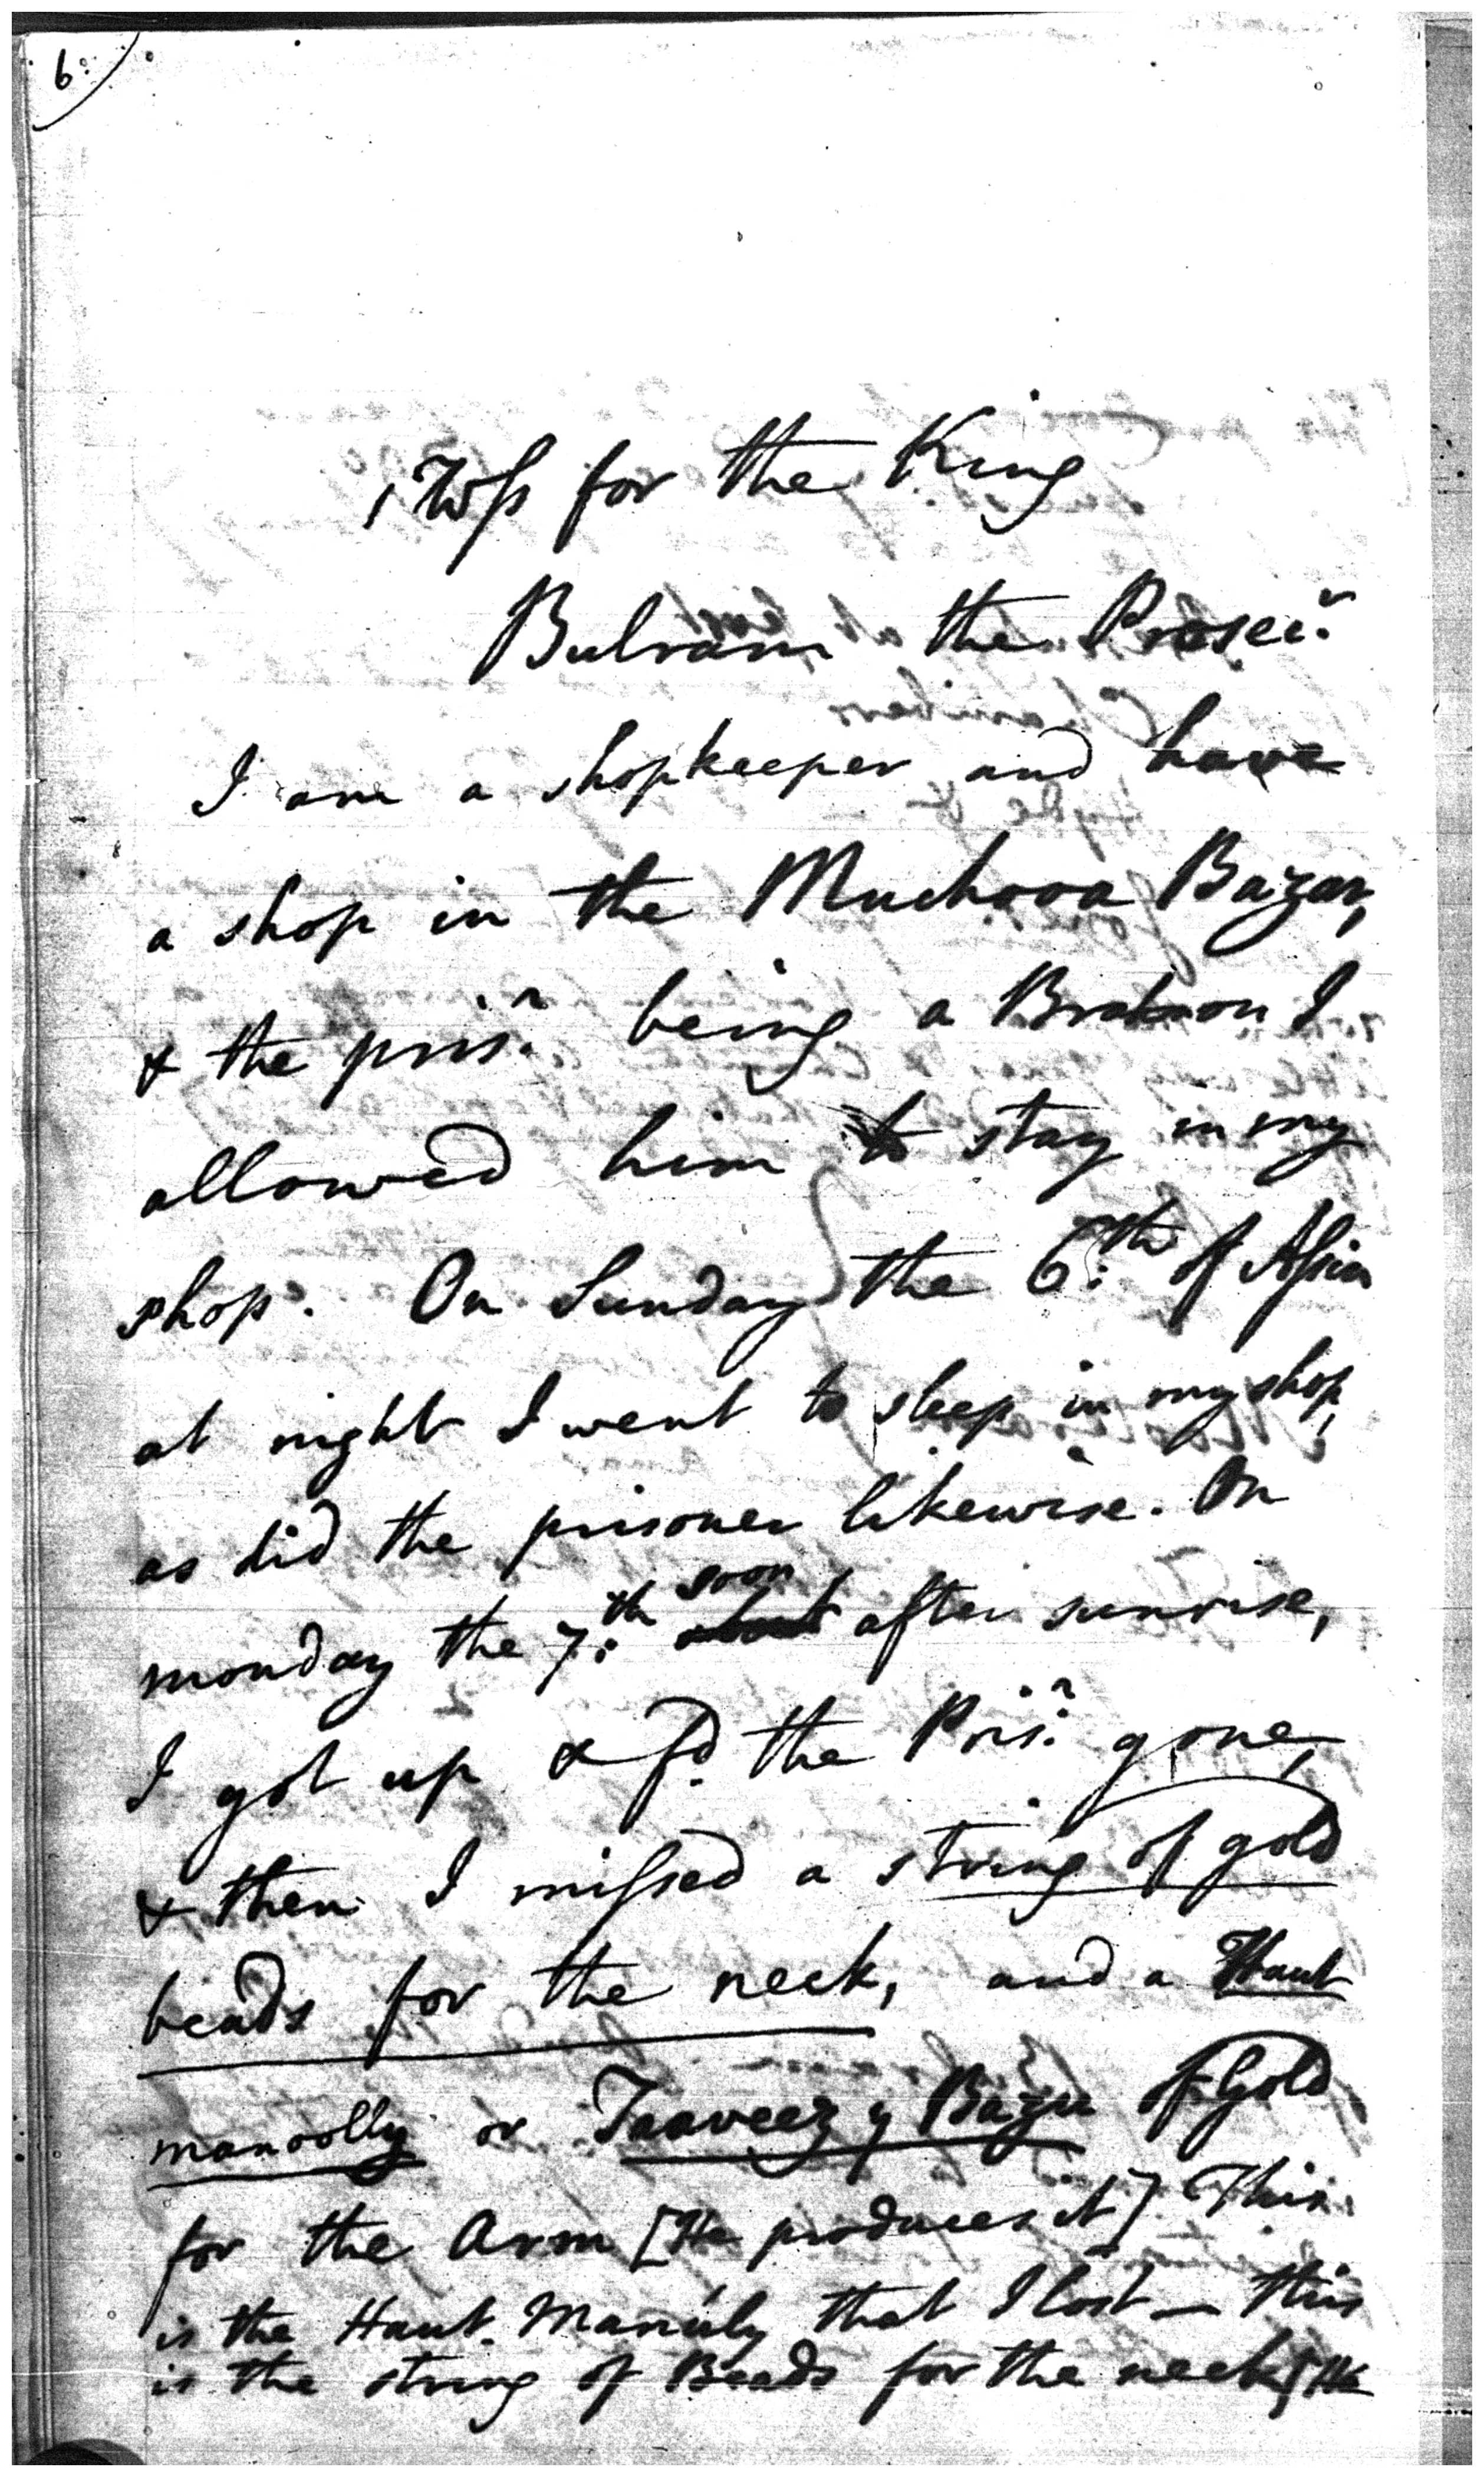 6:)
1 Wss for the King
Bulram the Prosec:r
I am a shopkeeper and have
a shop in the Muchooa Bazar,
& the pris:r being a Braman I
allowed him to stay in my
shop. On Sunday the 6:th of Assin
at night I went to sleep in my shop,
as did the prisoner likewise. On
monday the 7:th soon after sunrise,
I got up & fd. the Pris:r gone,
& then I missed a string of gold
beads for the neck, and a Haut
manoolly or Taaveez y Bazu of Gold
for the Arm [He produces it] This
is the Haut. Manúly that I lost — this
is the string of Beads for the neck [He